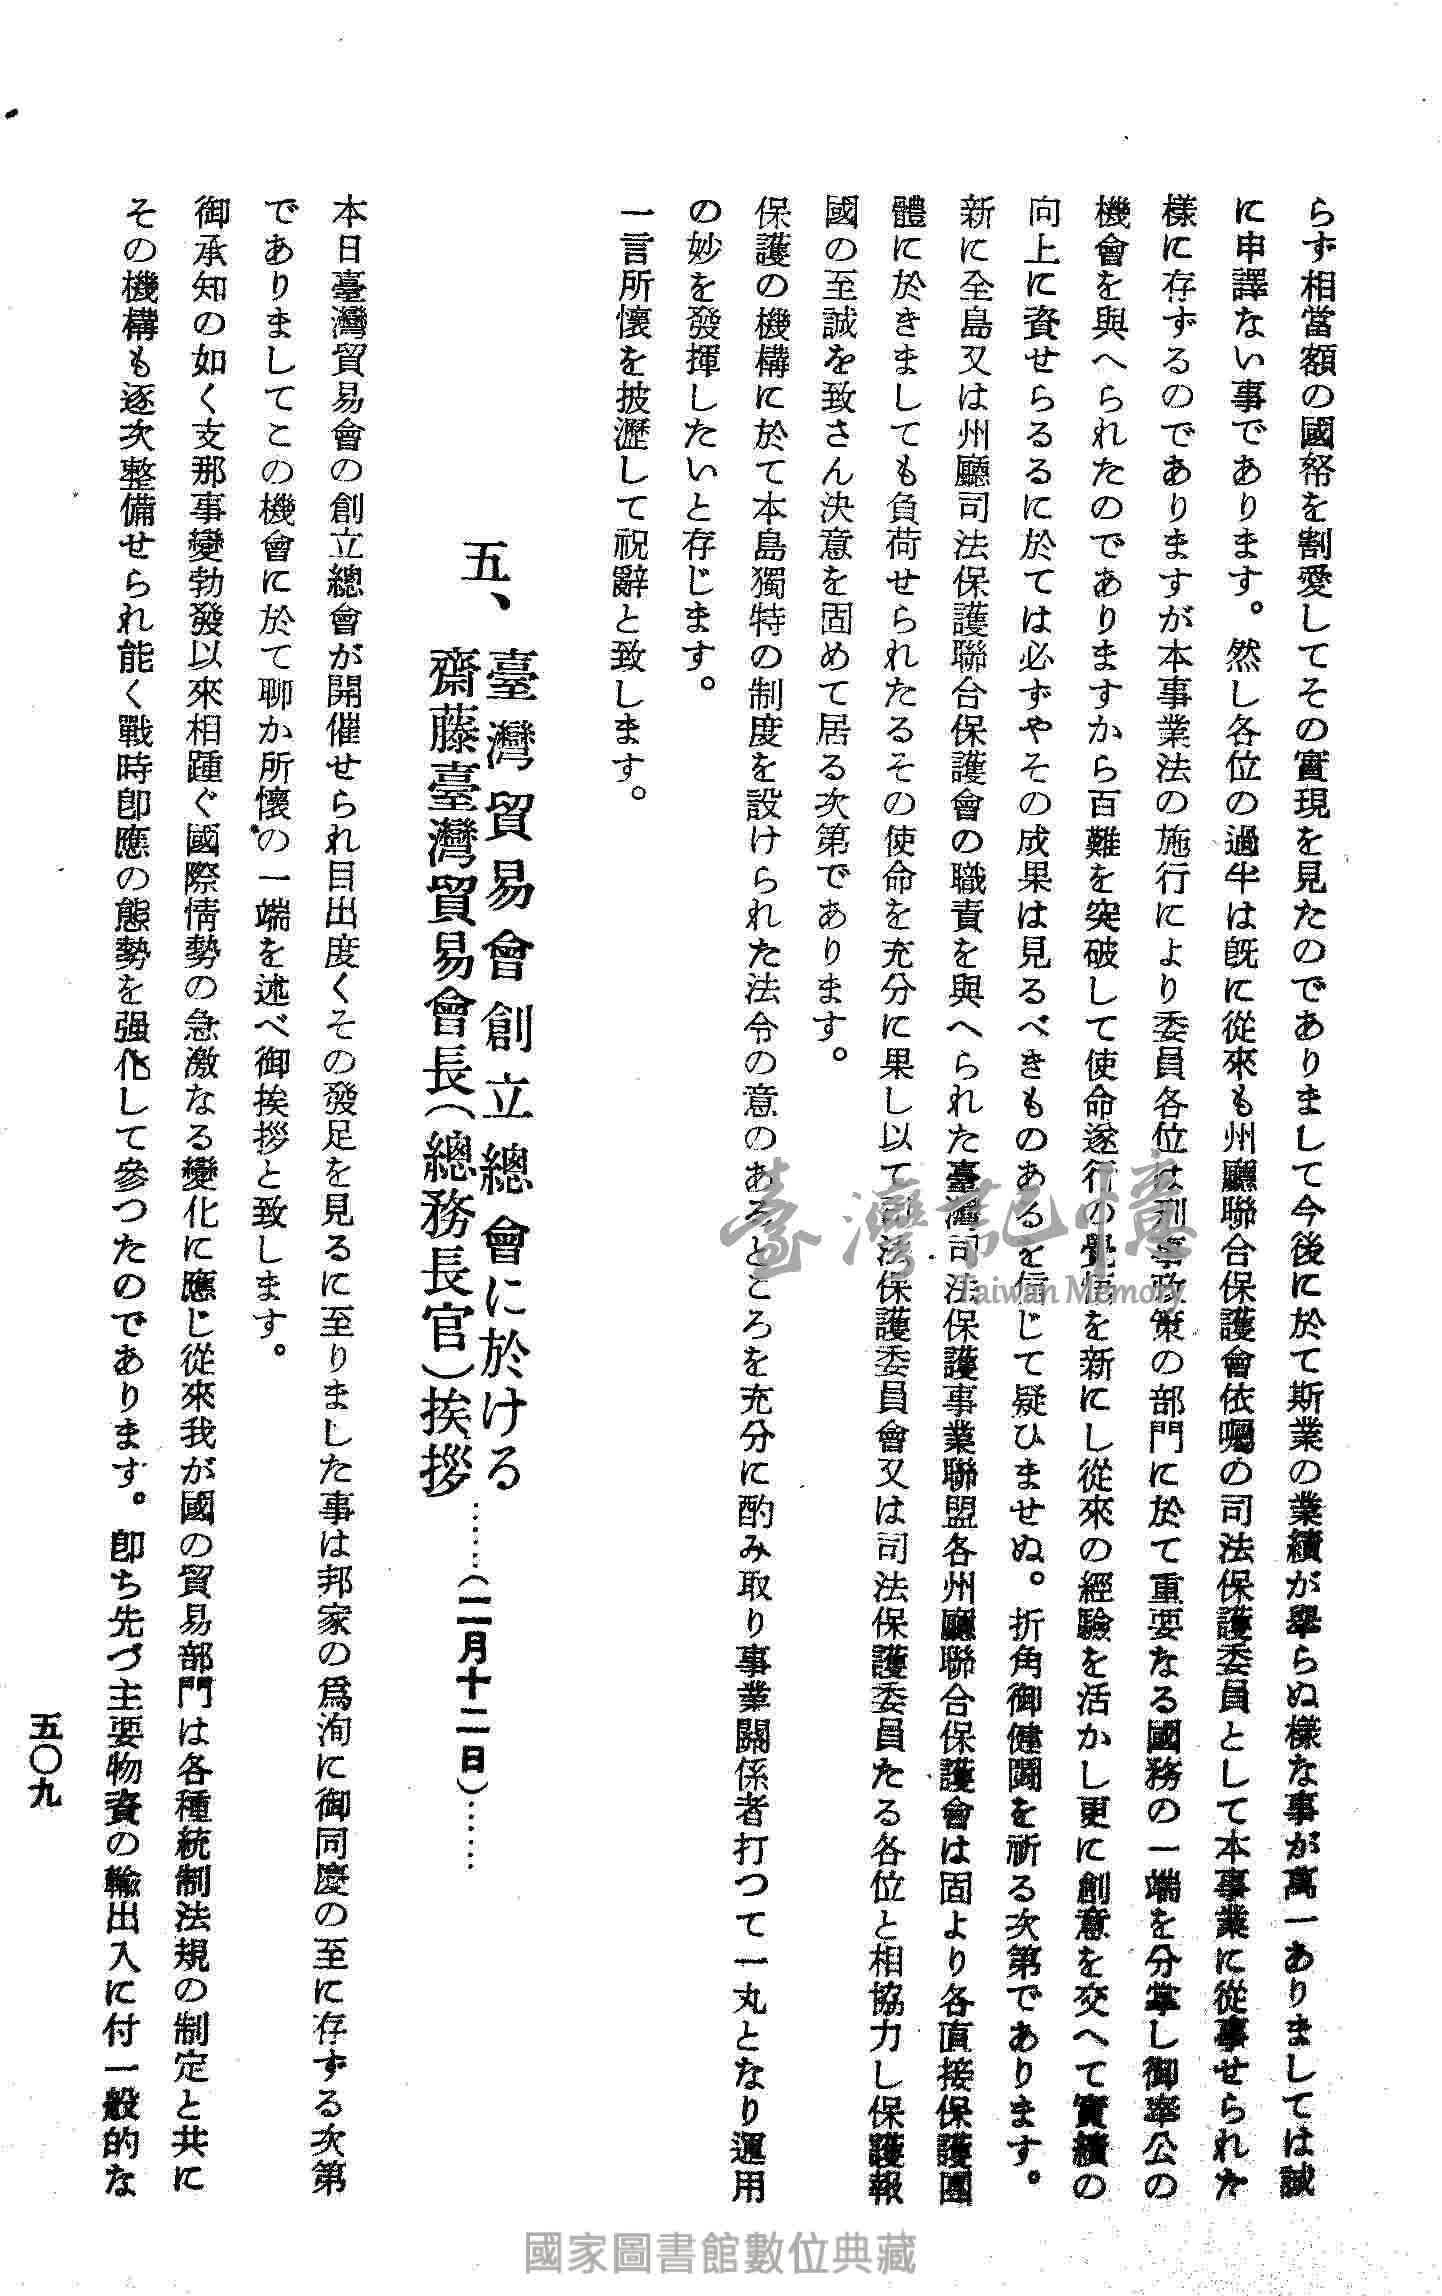 らず相當額の國帑を割愛してその實現を見たのでありまして今後に於て斯業の業績が擧らぬ樣な事が萬一ありましては誠
に申譯ない事であります。然し各位の過半は既に從來も州廳聯合保護會依囑の司法保護委員として本事業に從事せられた
樣に存ずるのでありますが本事業法の施行により委員各位は刑事政策の部門に於て重要なる國務の一端を分掌し御奉公の
機會を與へられたのでありますから百難を突破して使命遂行の覺悟を新にし從來の經驗を活かし更に創意を交へて實績の
向上に資せらるるに於ては必ずやその成果は見るべきものあるを信じて疑ひませぬ。折角御健鬪を祈る次第であります。
新に全島又は州廳司法保護聯合保護會の職責を與へられた臺灣司法保護事業聯盟各州廳聯合保護會は固より各直接保護團
體に於きましても負荷せられたるその使命を充分に果し以て司法保護委員會又は司法保護委員たる各位と相協力し保護報
國の至誠を致さん決意を固めて居る次第であります。
保護の機構に於て本島獨特の制度を設けられた法令の意のあるところを充分に酌み取り事業關係者打つて一丸となり運用
の妙を發揮したいと存じます。
一言所懷を披瀝して祝辭と致します。
五、臺灣貿易會創立總會に於ける
齋藤臺灣貿易會長(總務長官)挨拶……(二月十二日)……
本日臺灣貿易會の創立總會が開催せられ目出度くその發足を見るに至りました事は邦家の爲洵に御同慶の至に存ずる次第
でありましてこの機會に於て聊か所懷の一端を述べ御挨拶と致します。
御承知の如く支那事變勃發以來相踵ぐ國際情勢の急激なる變化に應じ從來我が國の貿易部門は各種統制法規の制定と共に
その機構も逐次整備せられ能く戰時卽應の態勢を强化して參つたのであります。卽ち先づ主要物資の輸出入に付一般的な
五〇九
臺灣記憶
Taiwan Memory
國家圖書館數位典藏